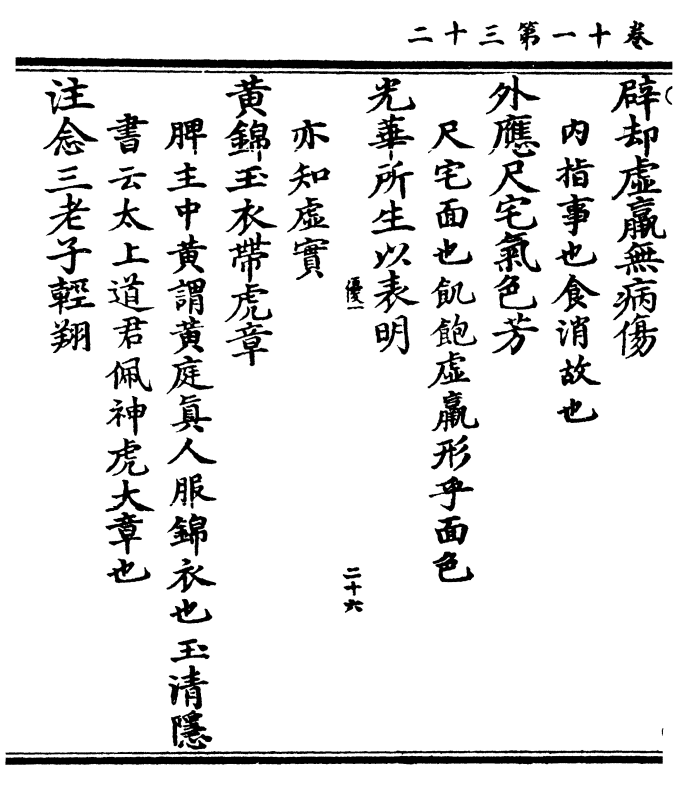 卷十一第三十二
辟却虛羸無病傷
內指事也食消故也
外應尺宅氣色芳
尺宅面也飢飽虛羸形乎面色
光華所生以表明
優一
二十六
亦知虛實
黃錦玉衣帶虎章
脾主中黃謂黃庭眞人服錦衣也玉清隱
書云太上道君佩神虎大章也
注念三老子輕翔